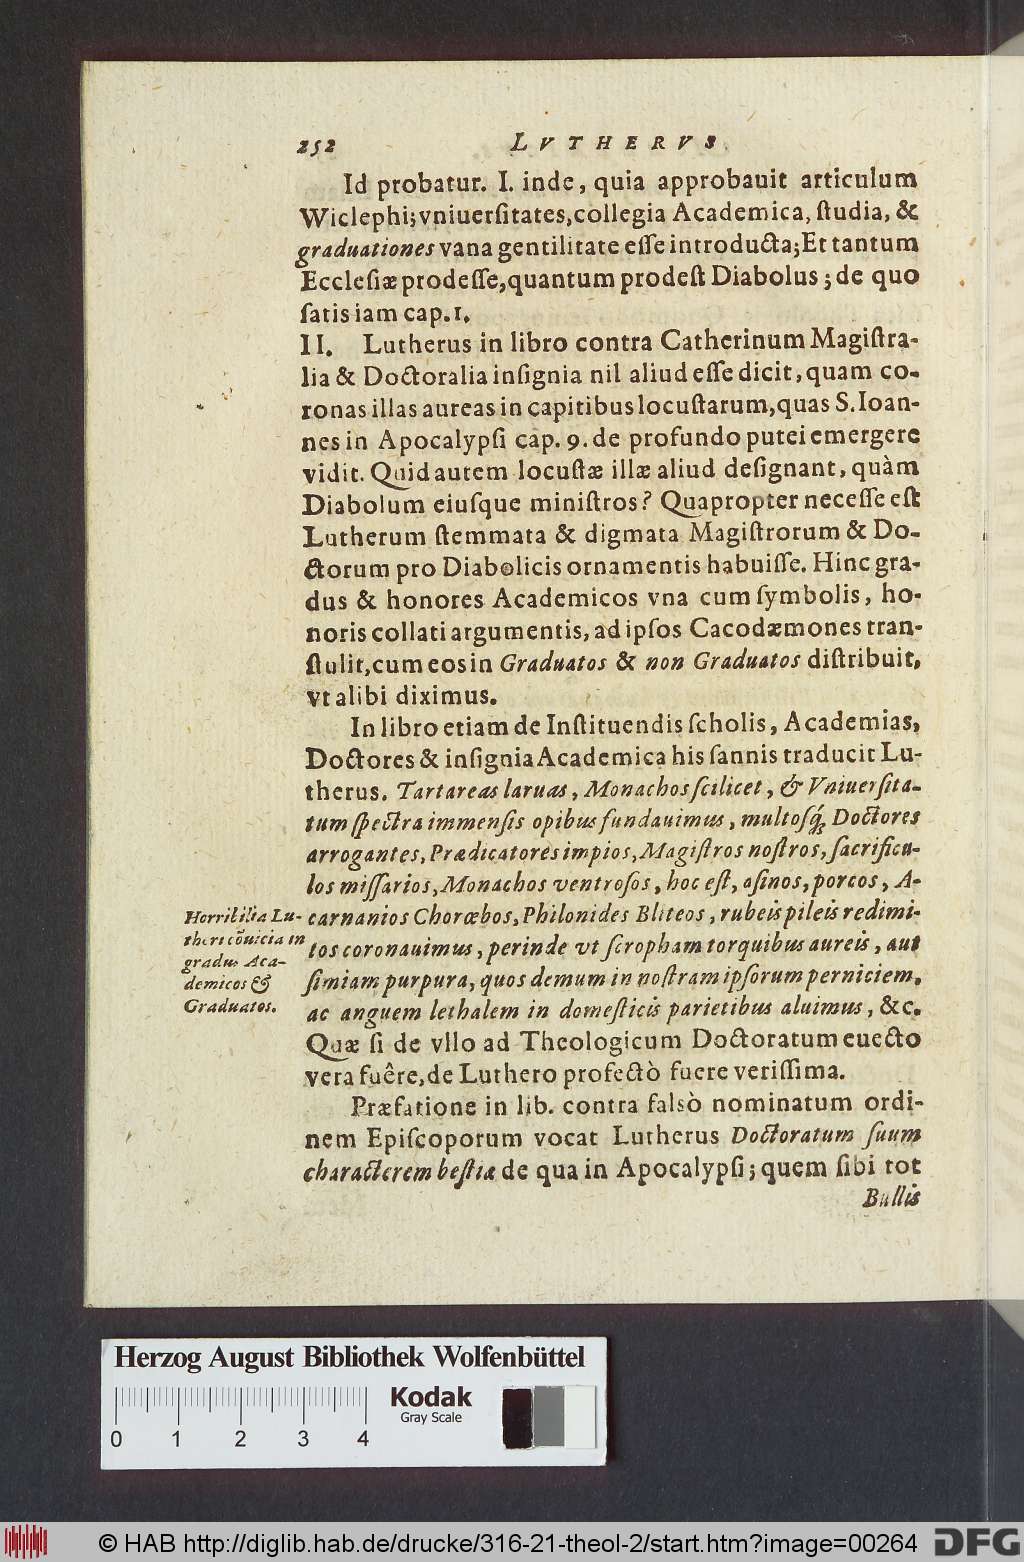 252 LVTHERVS.
Id probatur. I. inde, quia approbauit articulum
Wiclephi; vniuerſitates, collegia Academica, ſtudia, &
graduationes vana gentilitate eſſe introducta; Et tantum
Eccleſiæ prodeſſe, quantum prodeſt Diabolus; de quo
ſatis iam cap. 1.
II. Lutherus in libro contra Catherinum Magiſtra-
lia & Doctoralia inſignia nil aliud eſſe dicit, quam co-
ronas illas aureas in capitibus locuſtarum, quas S. Ioan-
nes in Apocalypſi cap. 9. de profundo putei emergere
vidit. Quid autem locuſtæ illæ aliud deſignant, quàm
Diabolum eiuſque miniſtros? Quapropter neceſſe eſt
Lutherum ſtemmata & digmata Magiſtrorum & Do-
ctorum pro Diabolicis ornamentis habuiſſe. Hinc gra-
dus & honores Academicos vna cum ſymbolis, ho-
noris collati argumentis, ad ipſos Cacodæmones tran-
ſtulit, cum eos in Graduatos & non Graduatos diſtribuit,
vt alibi diximus.
In libro etiam de Inſtituendis ſcholis, Academias,
Doctores & inſignia Academica his ſannis traducit Lu-
therus. Tartareas laruas, Monachos ſcilicet, & Vniuerſita-
tum ſpectra immenſis opibus fundauimus, multoſq́; Doctores
arrogantes, Prædicatores impios, Magiſtros noſtros, ſacrificu-
los miſſarios, Monachos ventroſos, hoc eſt, aſinos, porcos, A-
carnanios Chorœbos, Philonides Bliteos, rubeis pileis redimi-
tos coronauimus, perinde vt ſcropham torquibus aureis, aut
ſimiam purpura, quos demum in noſtram ipſorum perniciem,
ac anguem lethalem in domeſticis parietibus aluimus, &c.
Quæ ſi de vllo ad Theologicum Doctoratum euecto
vera fuêre, de Luthero profectò fuere veriſſima.
Horribilia Lu-
theri cõuicia in
gradus Aca-
demicos &
Graduatos.
Præfatione in lib. contra falsò nominatum ordi-
nem Epiſcoporum vocat Lutherus Doctoratum ſuum
characterem beſtiæ de qua in Apocalypſi; quem ſibi tot
Bullis
Herzog August Bibliothek Wolfenbüttel
Kodak
Gray Scale
0 1 2 3 4
© HAB http://diglib.hab.de/drucke/316-21-theol-2/start.htm?image=00264
DFG